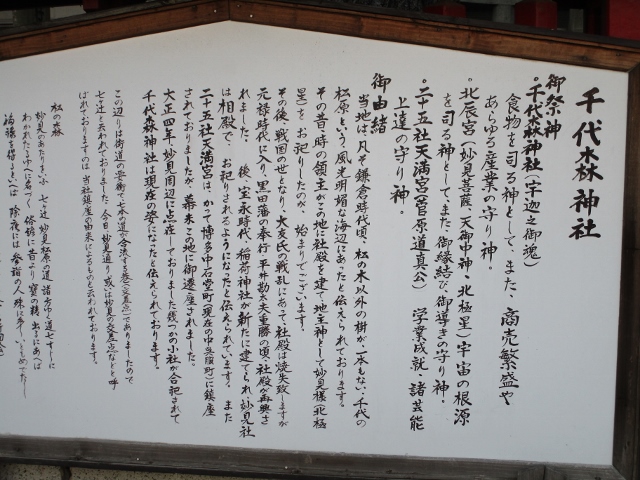 千代森神社
御祭神
。千代森神社(宇迦之御魂)
食物を司る神として、また、商売繁盛や
あらゆる産業の守り神。
。北辰宮(妙見菩薩、天御中神、北極星)宇宙の根源
を司る神としてまた、御縁結び、御導きの守り神、
。二十五社天満宮(菅原道真公) 学業成就、諸芸能
上達の守り神。
御由緒
当地は、凡そ鎌倉時代頃、松の木以外の樹が一本もない、千代の
松原という、風光明媚な海辺にあったと伝えられております。
その昔、時の領主がこの地に社殿を建て地主神として妙見様(北極
星)をお祀りしたのが、始まりでございます。
その後、戦国の世となり、大友氏の戦乱にあって社殿は焼失致しますが
元禄時代に入り、黒田藩の奉行、平井勘太夫重勝の頃、社殿が再興さ
れました。 後、宝永時代、稲荷神社が新たに建てられ、妙見社
は相殿で、お祀りされるようになったと伝えられています、また
二十五社天満宮は、かつて博多中石堂町(現在の中呉服町)に鎮座
されておりましたが、幕末この地に御遷座されました。
大正四年、妙見周辺に点在しておりました幾つかの小社が合祀されて
千代森神社は現在の姿になったと伝えられております。
この辺りは街道の要衝で七本の道が合流する処(交差点)でありましたので
七ツ辻と云われておりました。今日、妙見通り或いは妙見の交差点などと呼
ばれておりますのは、当社鎮座の由来によるものと云われております。
松の森